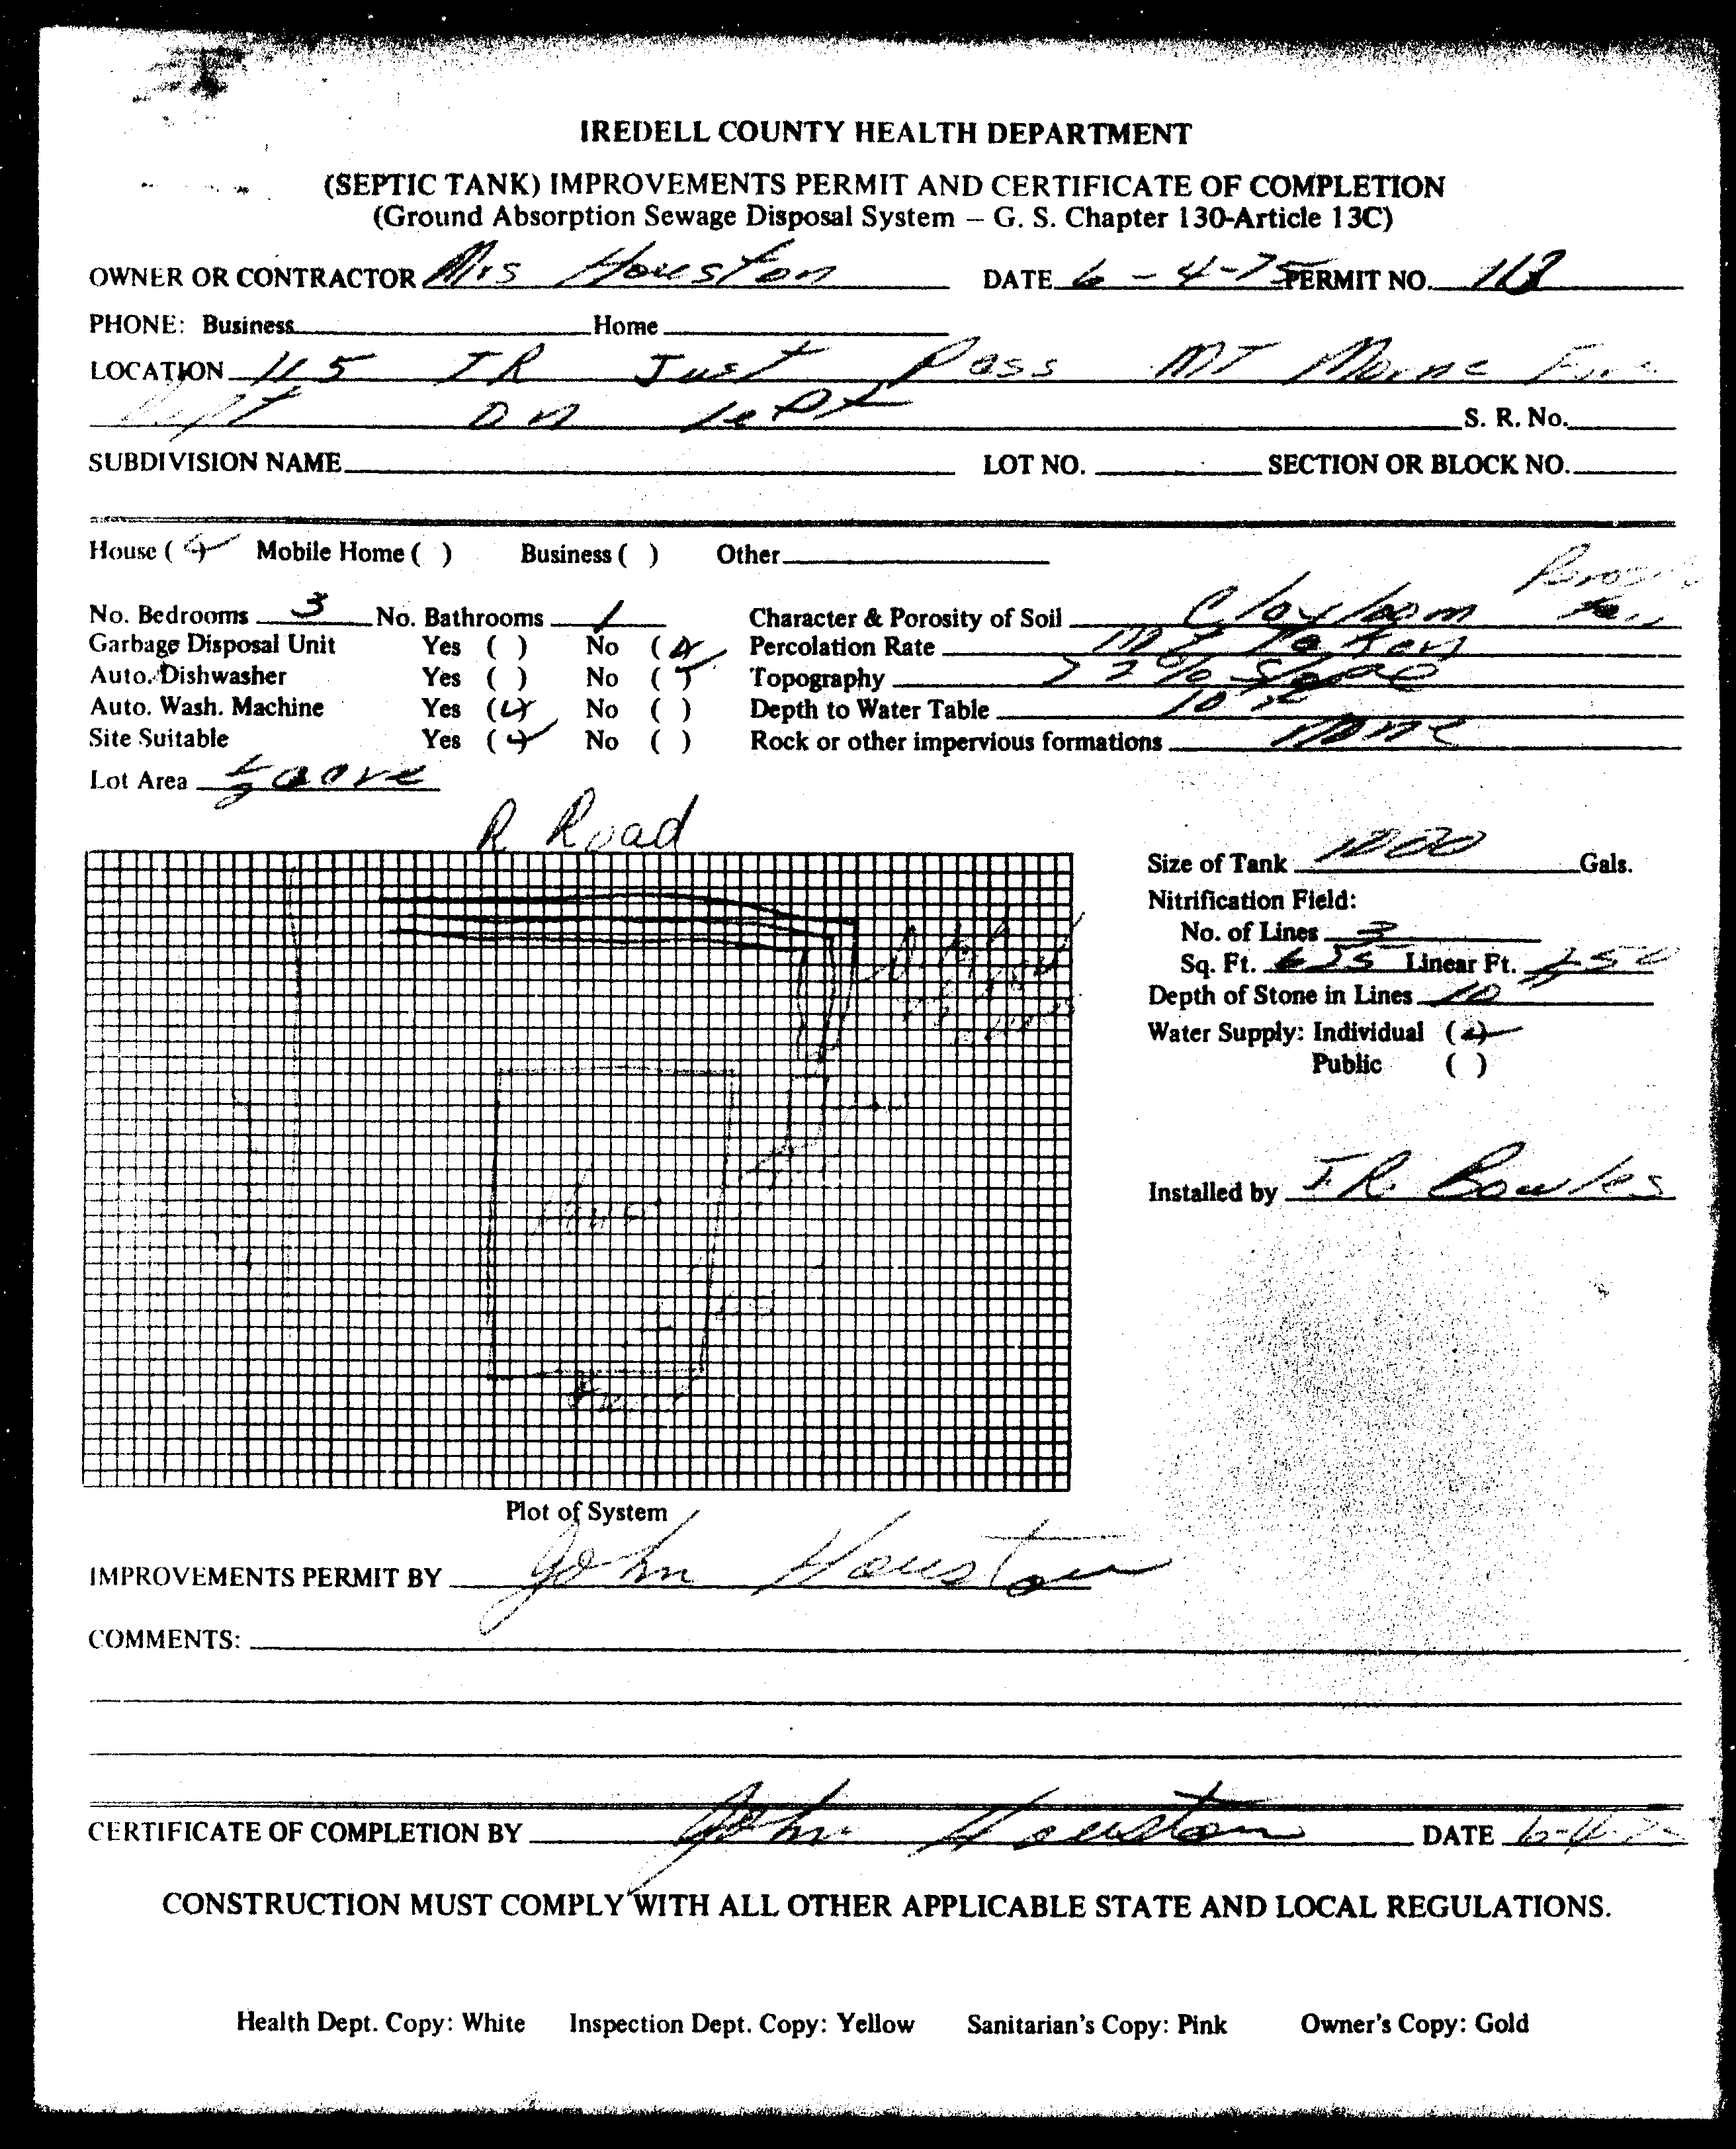 IREDELL COUNTY HEALTH DEPARTMENT
(SEPTIC TANK) IMPROVEMENTS PERMIT AND CERTIFICATE OF COMPLETION
(Ground Absorption Sewage Disposal System – G. S. Chapter 130-Article 13C)
OWNER OR CONTRACTOR Mrs Houston DATE 6-4-75 PERMIT NO.
PHONE: Business Home
LOCATION 115 TR Just Pass MT Morne Fire
Dept on left S. R. No.
SUBDIVISION NAME LOT NO. SECTION OR BLOCK NO.
House (✓) Mobile Home ( ) Business ( ) Other
No. Bedrooms 3 No. Bathrooms 1 Character & Porosity of Soil Clayloam
Garbage Disposal Unit Yes ( ) No (✓) Percolation Rate not Taken
Auto. Dishwasher Yes ( ) No (✓) Topography 2% Slope
Auto. Wash. Machine Yes (✓) No ( ) Depth to Water Table 10
Site Suitable Yes (✓) No ( ) Rock or other impervious formations none
Lot Area 1/2 acre
R Road
Size of Tank 1000 Gals.
Nitrification Field:
No. of Lines 3
Sq. Ft. Linear Ft.
Depth of Stone in Lines 10"
Water Supply: Individual (✓)
Public ( )
Installed by J.R. Bowles
Plot of System
IMPROVEMENTS PERMIT BY John Houston
COMMENTS:
CERTIFICATE OF COMPLETION BY John Houston DATE 6-4-75
CONSTRUCTION MUST COMPLY WITH ALL OTHER APPLICABLE STATE AND LOCAL REGULATIONS.
Health Dept. Copy: White Inspection Dept. Copy: Yellow Sanitarian's Copy: Pink Owner's Copy: Gold